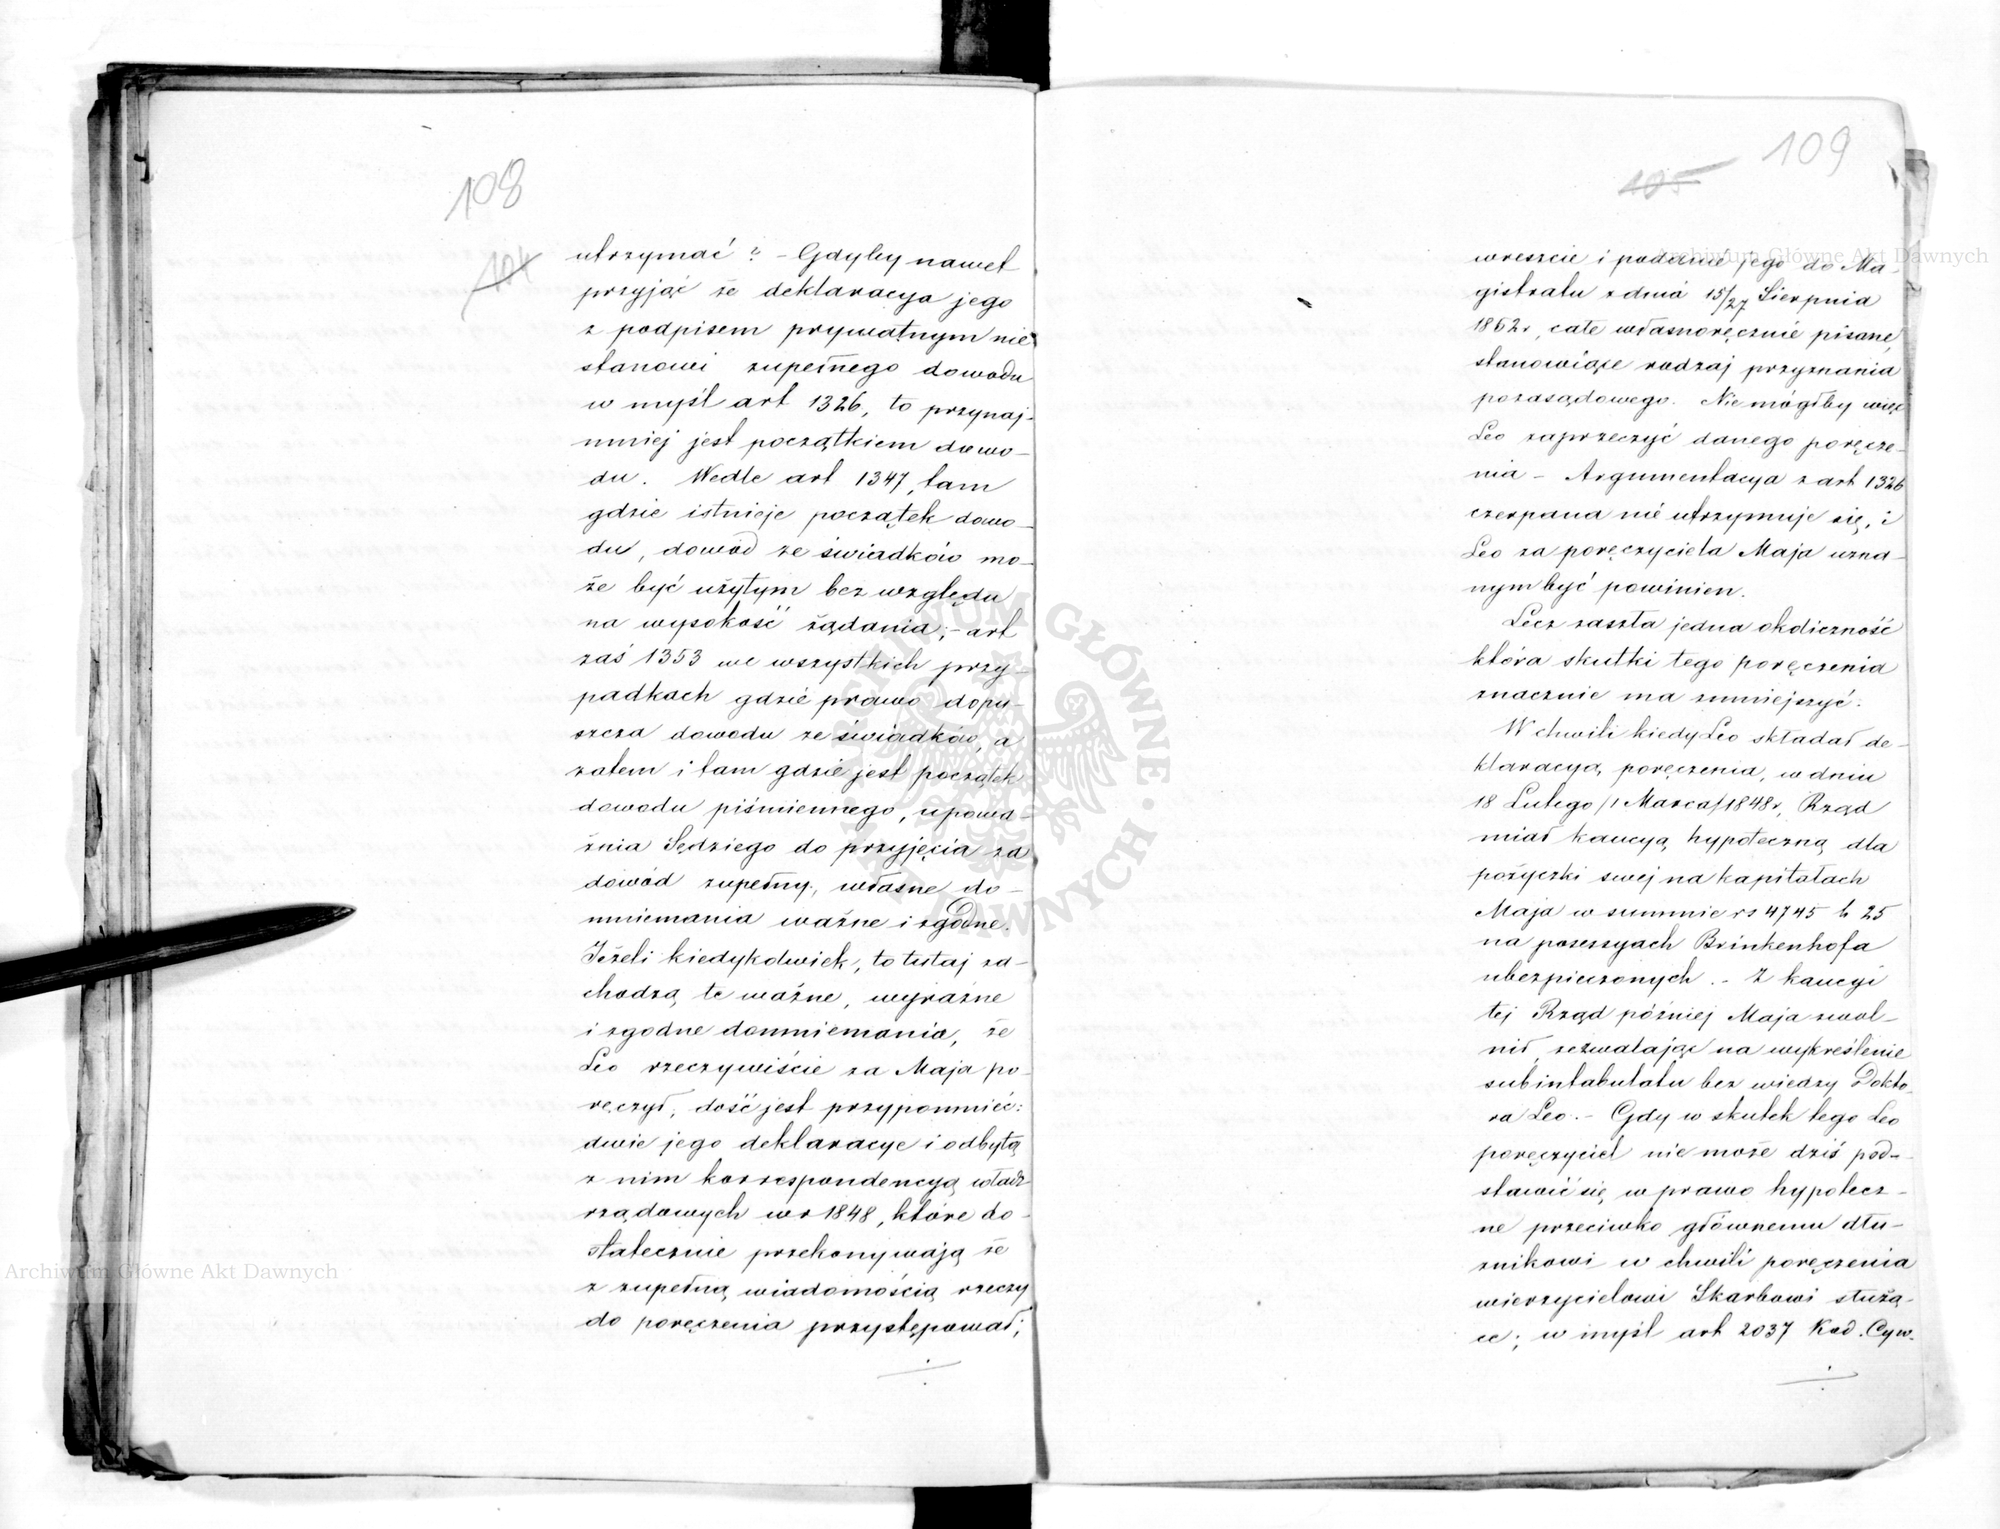 108
104
utrzymać? – Gdyby nawet
przyjąć że deklaracya jego
z podpisem prywatnym nie
stanowi zupełnego dowodu
w myśl art 1326, to przynaj-
mniej jest początkiem dowo-
du. Wedle art 1347, tam
gdzie istnieje początek dowo-
du, dowód ze świadków mo-
że być użytym bez względu
na wysokość żądania; – art
zaś 1353 we wszystkich przy-
padkach gdzie prawo dopu-
szcza dowodu ze świadków, a
zatem i tam gdzie jest początek
dowodu piśmiennego, upowa-
żnia Sędziego do przyjęcia za
dowód zupełny, własne do-
mniemania ważne i zgodne.
Jeżeli kiedykolwiek, to tutaj za-
chodzą te ważne, wyraźne
i zgodne domniemania, że
Leo rzeczywiście za Maja po-
ręczył, dość jest przypomnieć:
dwie jego deklaracye i odbytą
z nim korrespondencyą władz
rządowych w r 1848, które do-
statecznie przekonywają że
z zupełną wiadomością rzeczy
do poręczenia przystępował;
109
105
wreszcie i podanie jego do Ma-
gistratu z dnia 15/27 Sierpnia
1852 r, całe własnoręcznie pisane,
stanowiące rodzaj przyznania
pozasądowego. Nie mógłby więc
Leo zaprzeczyć danego poręcze-
nia – Argumentacya z art 1326
czerpana nie utrzymuje się, i
Leo za poręczyciela Maja uzna-
nym być powinien.
Lecz zaszła jedna okoliczność
która skutki tego poręczenia
znacznie ma zmniejszyć:
W chwili kiedy Leo składał de-
klaracyą poręczenia, w dniu
18 Lutego /1 Marca/ 1848 r, Rząd
miał kaucyą hypoteczną dla
pożyczki swej na kapitałach
Maja w summie rs 4745 k 25
na possesyach Brinkenhofa
ubezpieczonych. – Z kaucyi
tej Rząd później Maja zwol-
nił, zezwalając na wykreślenie
subintabulatu bez wiedzy Dokto-
ra Leo. – Gdy w skutek tego Leo
poręczyciel nie może dziś pod-
stawić się w prawo hypotecz-
ne przeciwko głównemu dłu-
żnikowi w chwili poręczenia
wierzycielowi Skarbowi służą-
ce; w myśl art 2037 Kod. Cyw.
Archiwum Główne Akt Dawnych
Archiwum Główne Akt Dawnych